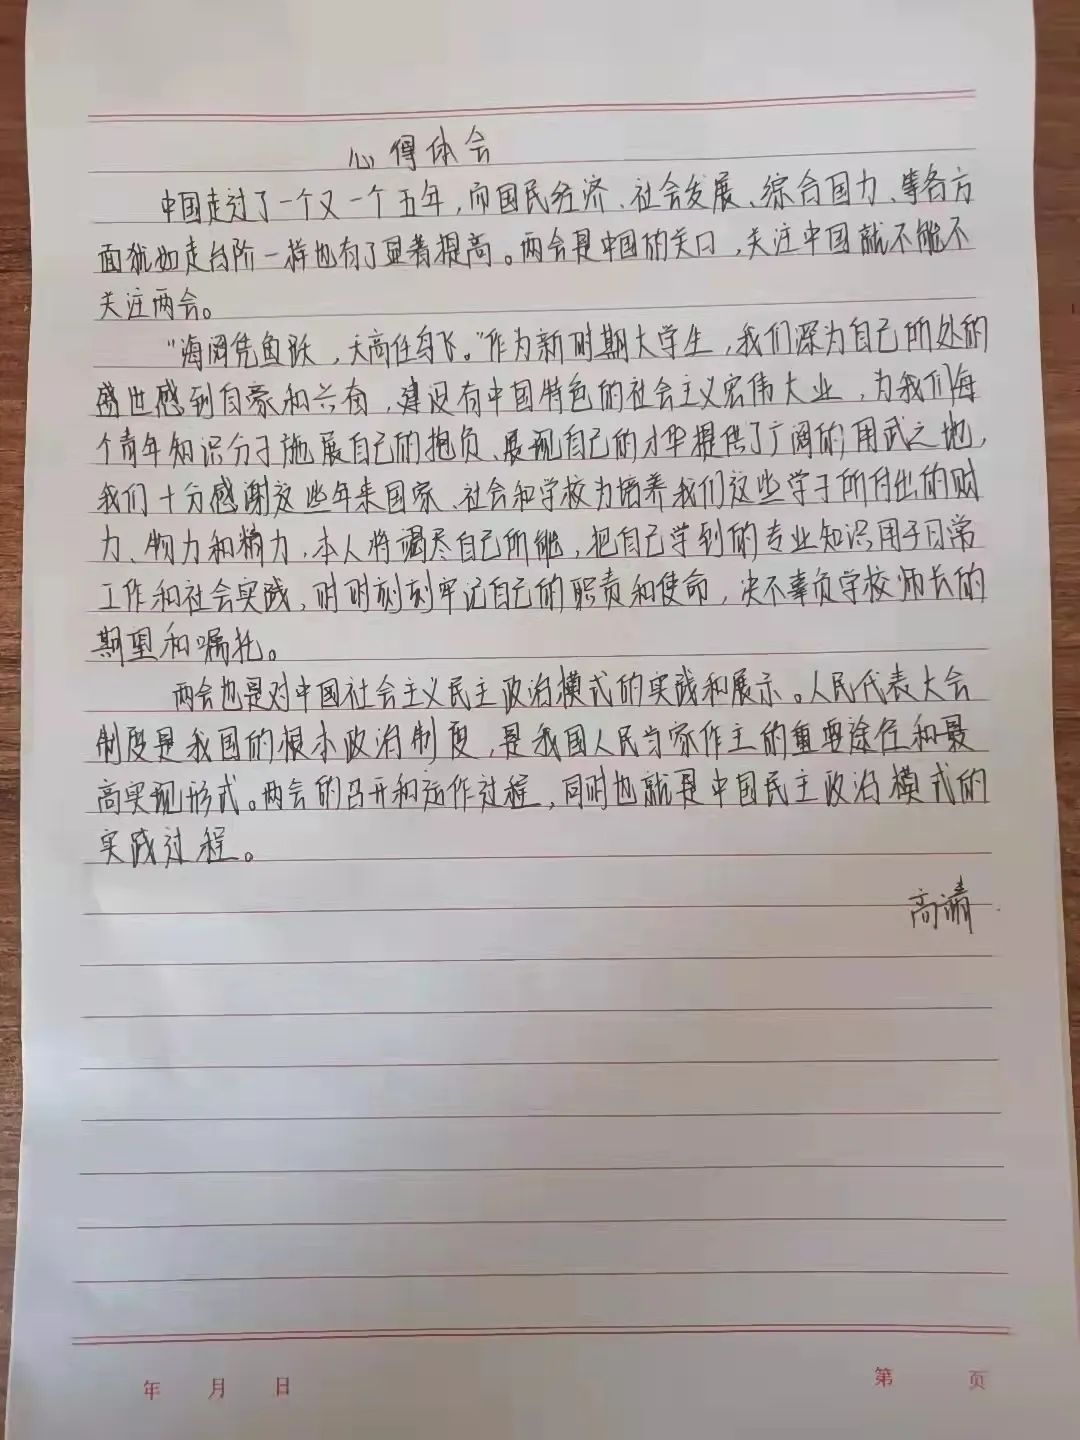 心得体会
中国走过了一个又一个五年,而国民经济、社会发展、综合国力、等各方
面犹如走台阶一样也有了显著提高。两会是中国的关口,关注中国就不能不
关注两会。
“海阔凭鱼跃,天高任鸟飞。”作为新时期大学生,我们深为自己所处的
盛世感到自豪和兴奋,建设有中国特色的社会主义宏伟大业,为我们每
个青年知识分子施展自己的抱负、展现自己的才华提供了广阔的用武之地,
我们十分感谢这些年来国家、社会和学校为培养我们这些学子所付出的财
力、物力和精力,本人将竭尽自己所能,把自己学到的专业知识用于日常
工作和社会实践,时时刻刻牢记自己的职责和使命,决不辜负学校师长的
期望和嘱托。
两会也是对中国社会主义民主政治模式的实践和展示。人民代表大会
制度是我国的根本政治制度,是我国人民当家作主的重要途径和最
高实现形式。两会的召开和运作过程,同时也就是中国民主政治模式的
实践过程。
高清
年 月 日 第 页